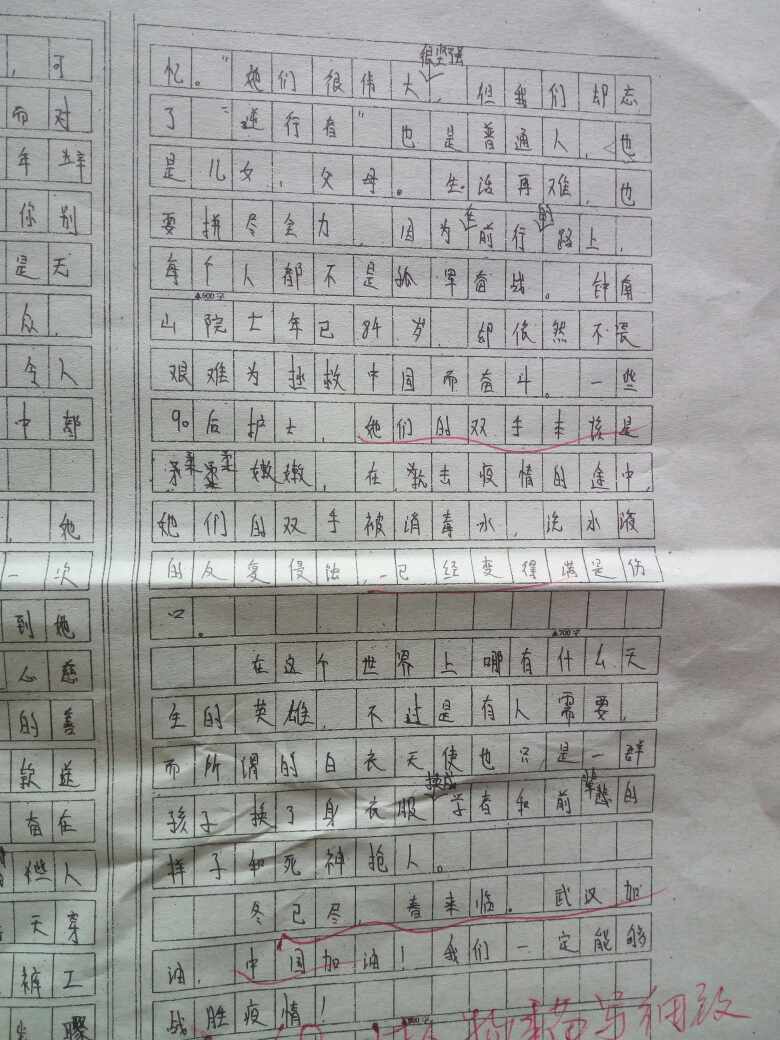 ，可
而对
年
你别
是无
众，
令人
中都
，她
一次
到她
心慈
的善
款送
奋在
些人
天穿
裤工
骤
很坚强
忆。”她们很伟大，但我们却忘
了“逆行者”也是普通人，也
是儿女，父母。生活再难，也
在 的
要拼尽全力，因为前行路上，
每个人都不是孤军奋战。钟南
▲500字
山院士年已84岁，却依然不畏
艰难为拯救中国而奋斗。一些
90后护士，她们的双手本该是
柔 柔
嫩嫩，在抗击疫情的途中，
她们的双手被消毒水，洗水液
的反复侵蚀，已经变得满是伤
口。
▲700字
在这个世界上哪有什么天
生的英雄，不过是有人需要，
而所谓的白衣天使也只是一群
换成 辈
孩子换了身衣服学着和前的
样子和死神抢人。
冬已尽，春来临。武汉加
油，中国加油！我们一定能够
战胜疫情！
细改